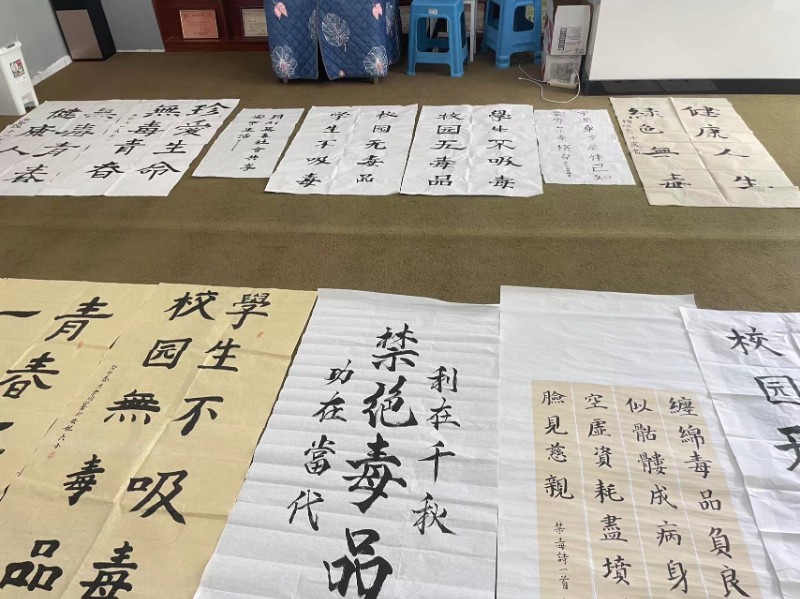 珍愛生命
無毒青春
無毒青春
健康人
校园无毒品
学生不吸毒
學生不吸毒
校园无毒品
健康人生
綠色無毒
學生不吸毒
校园無毒品
青
一春
利在千秋
禁绝毒品
功在當代
纏綿毒品負良
似骷髏成病身
空虛資耗盡墳
臉見慈親
禁毒詩一首
校园无